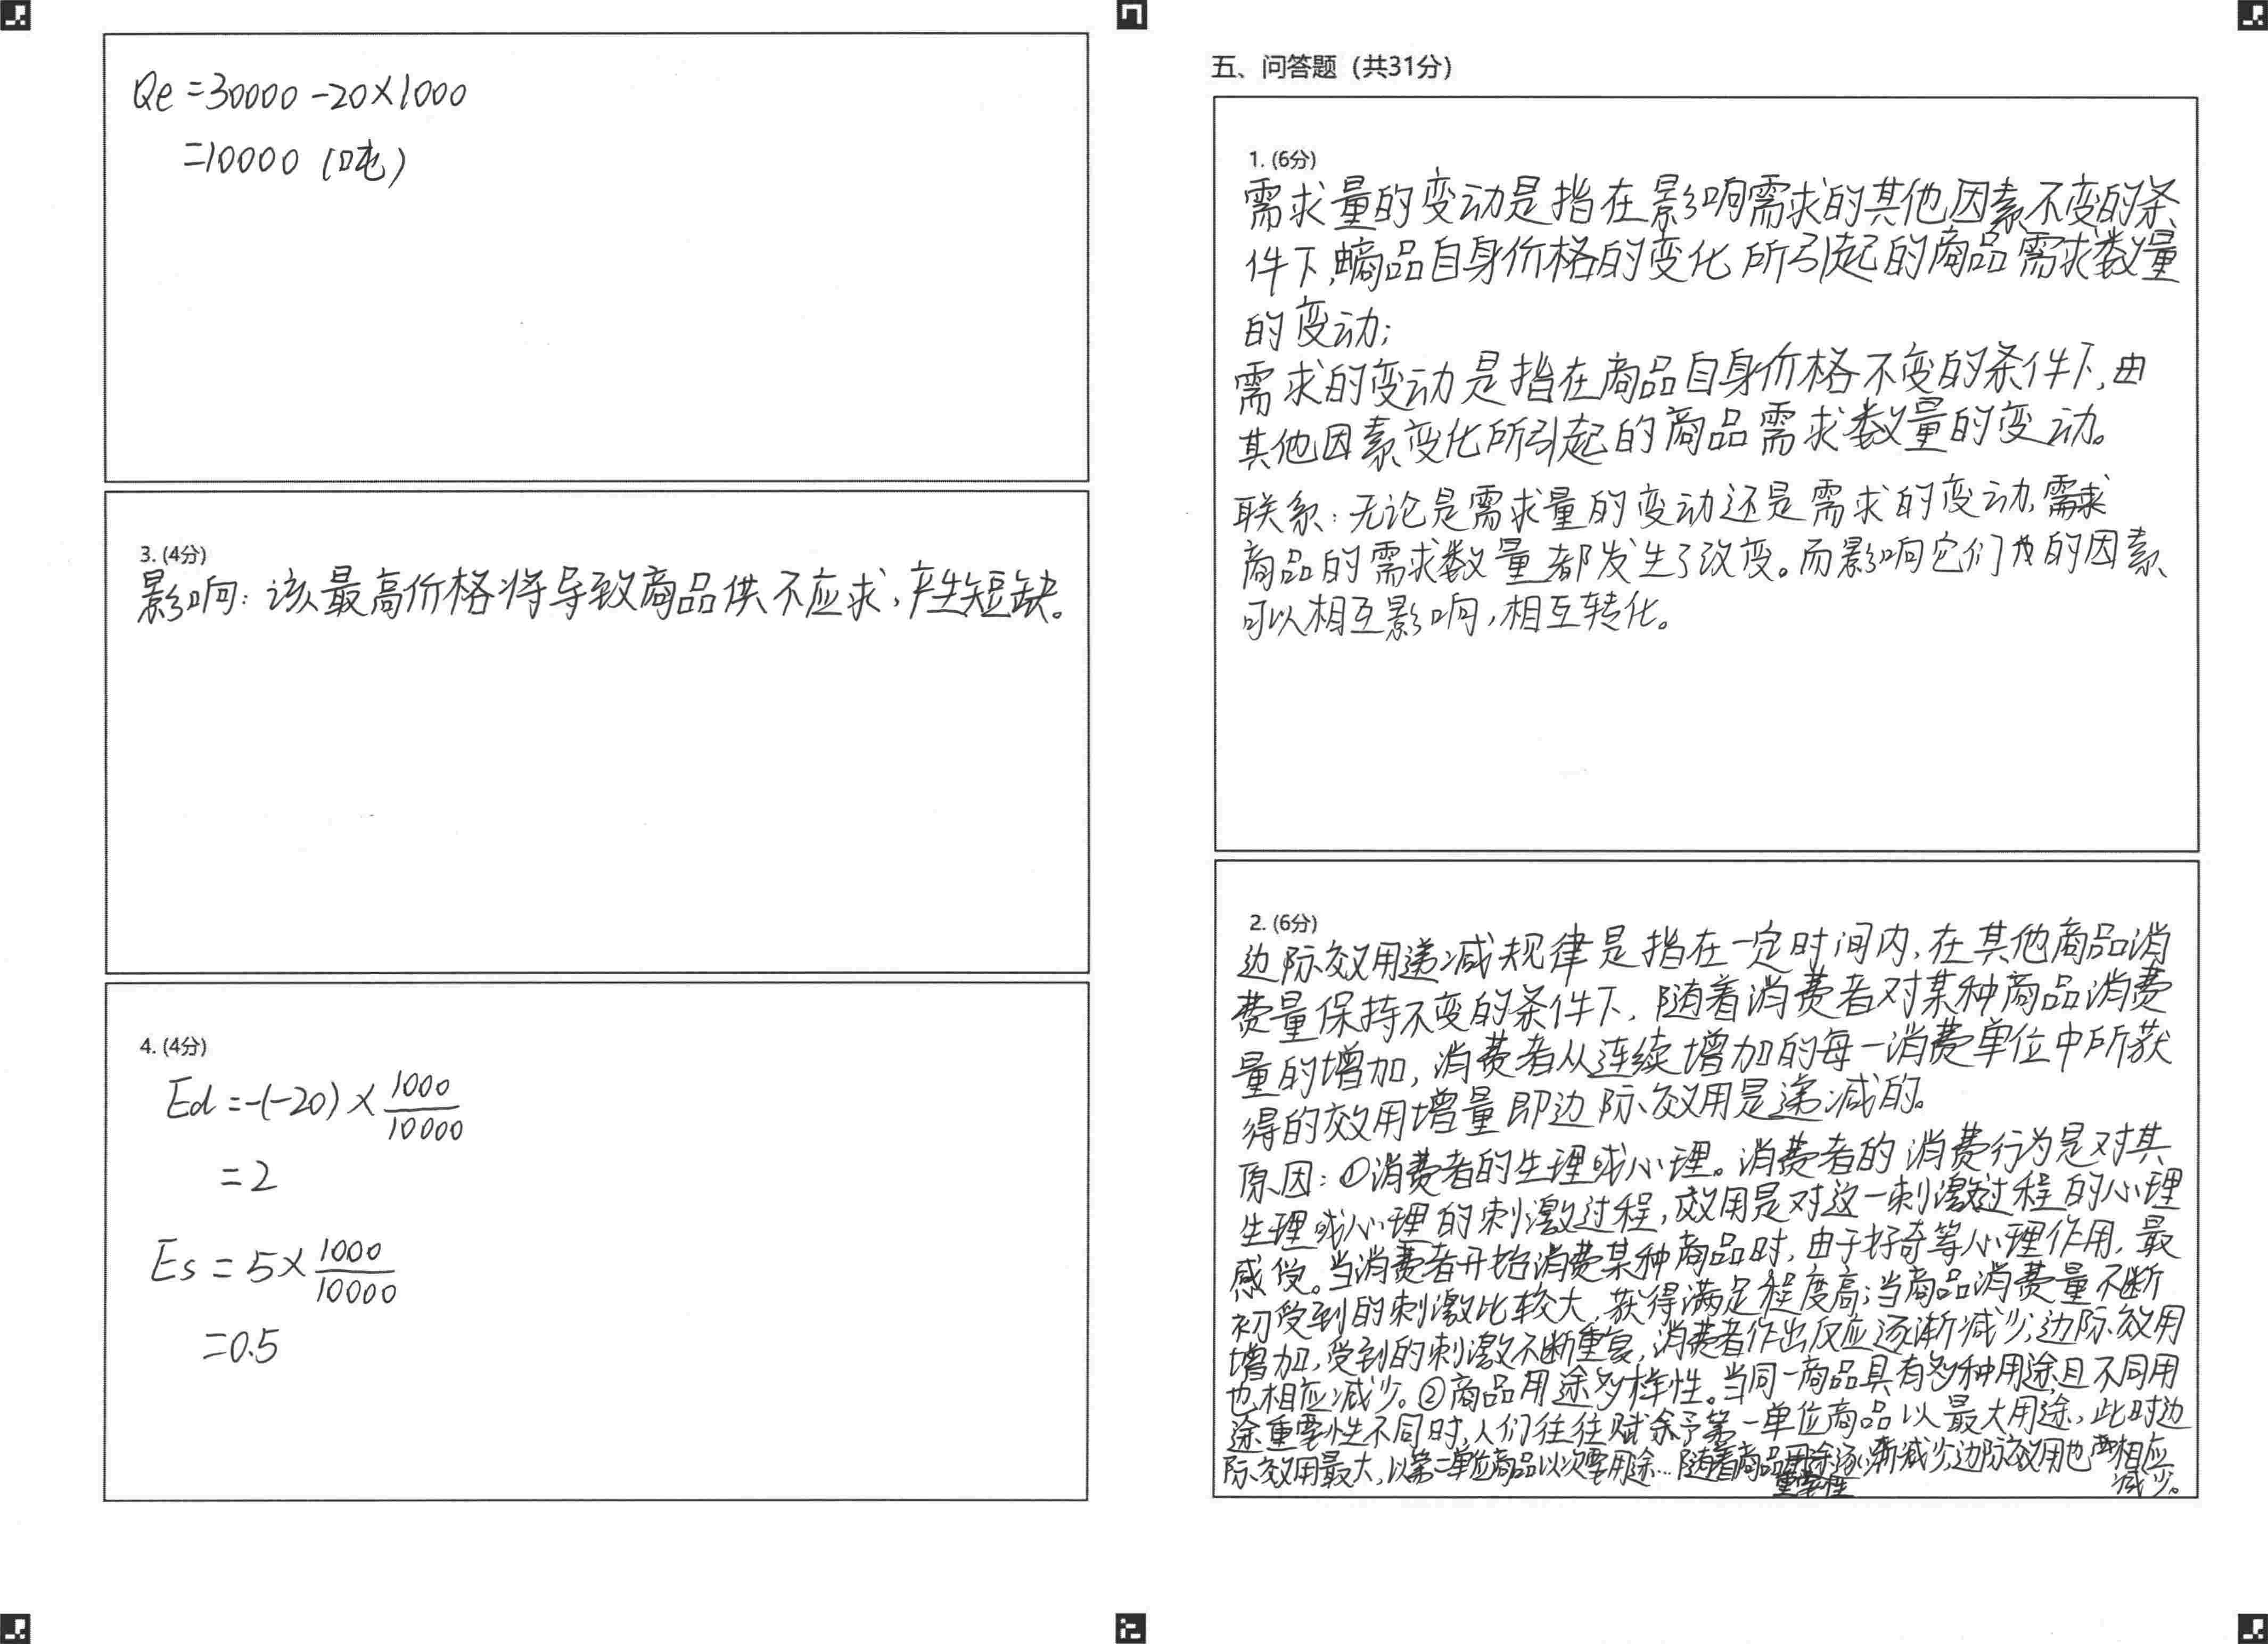 Qe=30000-20×1000
=10000 (吨)
3. (4分)
影响: 该最高价格将导致商品供不应求, 产生短缺。
4. (4分)
Ed=-(-20)×1000/10000
=2
Es=5×1000/10000
=0.5
五、问答题（共31分）
1. (6分)
需求量的变动是指在影响需求的其他因素不变的条
件下, 由商品自身价格的变化所引起的商品需求数量
的变动;
需求的变动是指在商品自身价格不变的条件下, 由
其他因素变化所引起的商品需求数量的变动。
联系: 无论是需求量的变动还是需求的变动,
商品的需求数量都发生了改变。而影响它们的因素
可以相互影响, 相互转化。
2. (6分)
边际效用递减规律是指在一定时间内, 在其他商品消
费量保持不变的条件下, 随着消费者对某种商品消费
量的增加, 消费者从连续增加的每一消费单位中所获
得的效用增量即边际效用是递减的。
原因: ①消费者的生理或心理。消费者的消费行为是对其
生理或心理的刺激过程, 效用是对这一刺激过程的心理
感受。当消费者开始消费某种商品时, 由于好奇等心理作用, 最
初受到的刺激比较大, 获得满足程度高; 当商品消费量不断
增加, 受到的刺激不断重复, 消费者作出反应逐渐减少, 边际效用
也相应减少。②商品用途多样性。当同一商品具有多种用途且不同用
途重要性不同时, 人们往往赋予第一单位商品以最大用途, 此时边
际效用最大, 以第二单位商品以次要用途… 随着商品重要性逐渐减少, 边际效用也相应
减少。